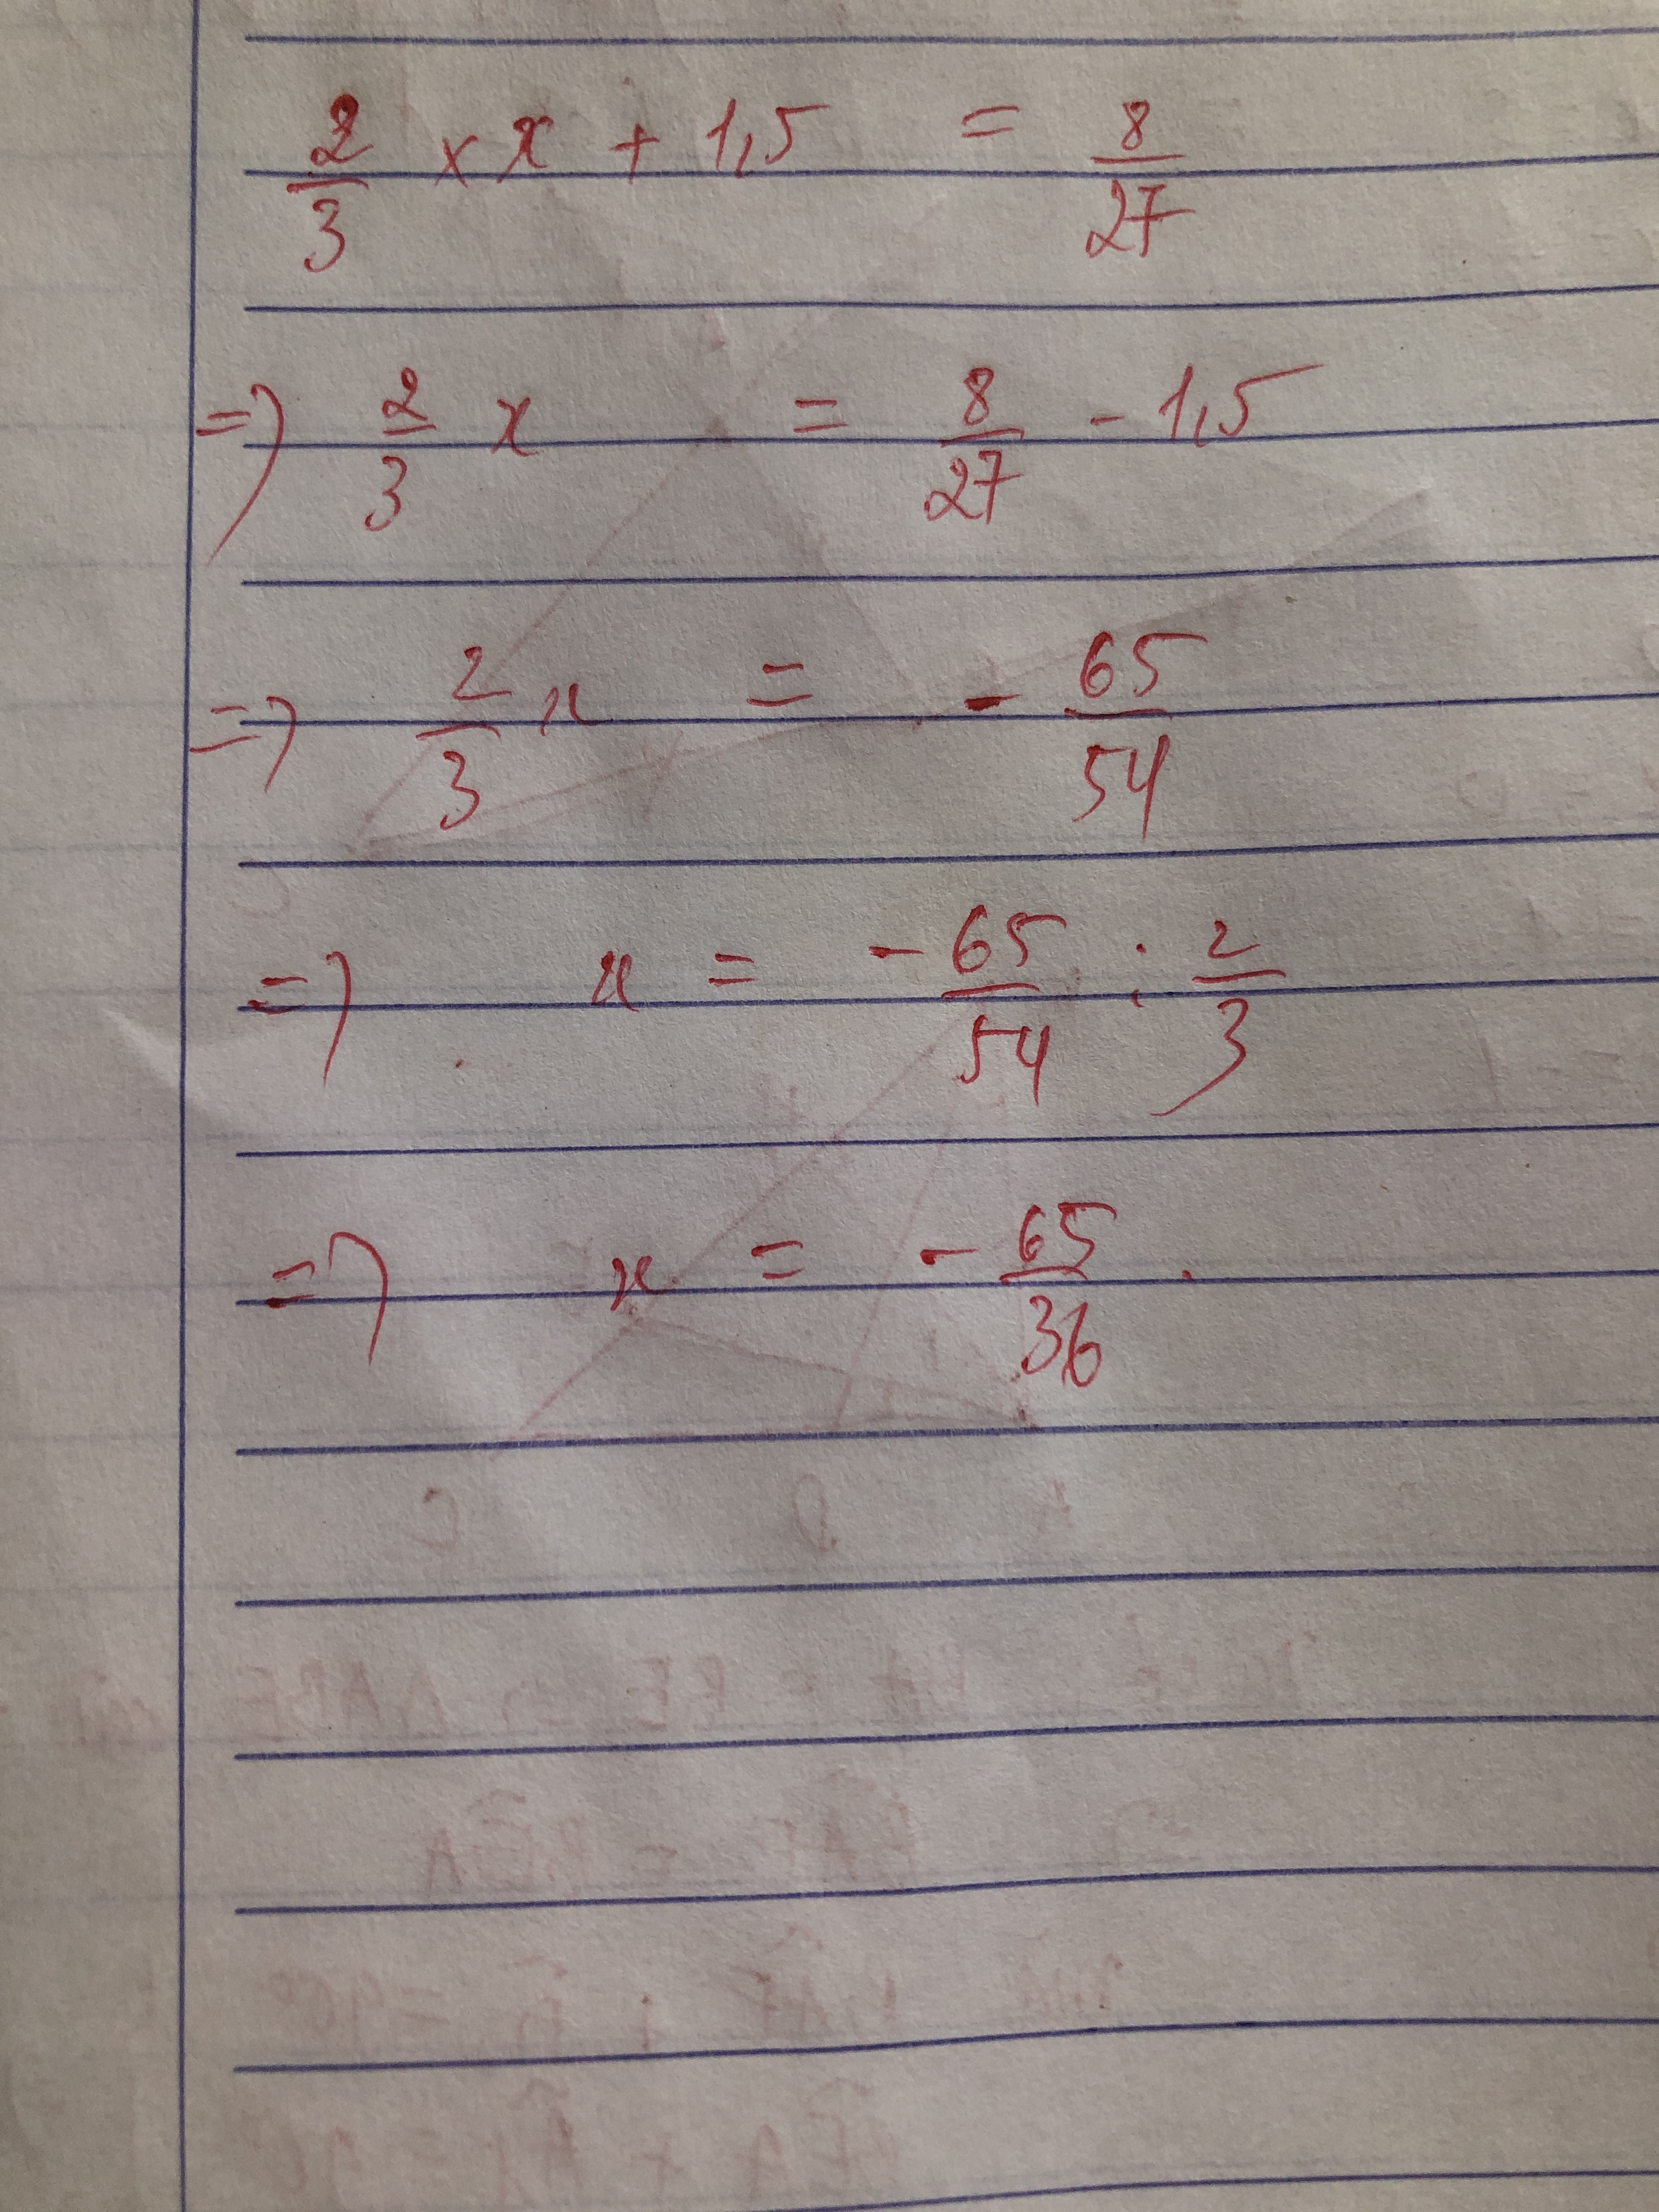 2/3 × x + 1,5 = 8/27
=> 2/3 x = 8/27 - 1,5
=> 2/3 x = - 65/54
=> x = - 65/54 : 2/3
=> x = - 65/36 .